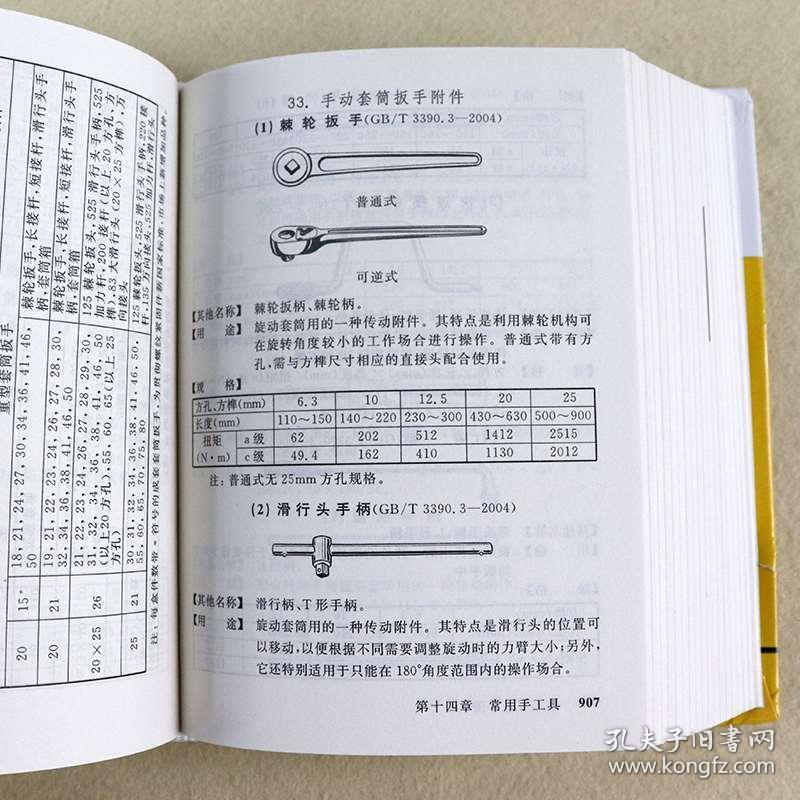 重型套筒扳手
20
15*
18, 21, 24, 27, 30, 34, 36, 41, 46,
50
棘轮扳手, 长接杆, 短接杆, 滑行头手
柄, 套筒箱
20
21
19, 21, 22, 23, 24, 26, 27, 28, 30,
32, 34, 36, 38, 41, 46, 50
棘轮扳手, 长接杆, 短接杆, 滑行头手
柄, 套筒箱
20×25
26
21, 22, 23, 24, 26, 27, 28, 29, 30,
31, 32, 34, 36, 38, 41, 46, 50
(以上 20 方孔), 55, 60, 65(以上 25
方孔)
125 棘轮扳头, 525 滑行头手柄, 525
加力杆, 200 接杆(以上 20 方孔、方
榫), 83 大滑行头(20×25 方榫), 万
向接头
25
21
30, 31, 32, 34, 36, 38, 41, 46, 50,
55, 60, 65, 70, 75, 80
125 棘轮扳头, 525 滑行头手柄, 220 接
杆, 135 万向接头, 525 加力杆, 滑行头
33. 手动套筒扳手附件
(1) 棘轮扳手(GB/T 3390.3—2004)
普通式
可逆式
【其他名称】 棘轮扳柄、棘轮柄。
【用 途】 旋动套筒用的一种传动附件。其特点是利用棘轮机构可
在旋转角度较小的工作场合进行操作。普通式带有方
孔,需与方榫尺寸相应的直接头配合使用。
【规 格】
方孔、方榫(mm) 6.3 10 12.5 20 25
长度(mm) 110～150 140～220 230～300 430～630 500～900
扭矩 a 级 62 202 512 1412 2515
(N·m) c 级 49.4 162 410 1130 2012
注: 普通式无 25mm 方孔规格。
(2) 滑行头手柄(GB/T 3390.3—2004)
【其他名称】 滑行柄、T 形手柄。
【用 途】 旋动套筒用的一种传动附件。其特点是滑行头的位置可
以移动,以便根据不同需要调整旋动时的力臂大小;另外,
它还特别适用于只能在 180°角度范围内的操作场合。
第十四章 常用手工具 907
孔夫子旧书网
www.kongfz.com